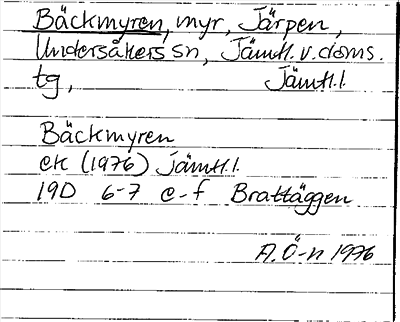 Bäckmyren, myr, Järpen,
Undersåkers sn, Jämtl. v. doms.
tg, Jämtl.l.
Bäckmyren
ek (1976) Jämtl.l.
19D 6-7 e-f Brattäggen
A.Ö-n 1976